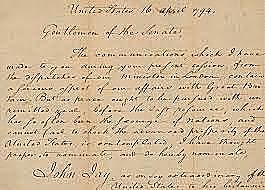 United States 16 April 1794.
Gentlemen of the Senate,
The communications which I have
made to you during your present session, from
the dispatches of our Minister in London, contain
a serious aspect of our affairs with Great Bri-
tain. But as peace ought to be pursued with un-
remitted zeal, before the last resource, which
has so often been the scourge of Nations, and
cannot fail to check the advanced prosperity of the
United States, is contemplated, I have thought
proper to nominate, and do hereby nominate
John Jay, as envoy extraordinary of the
United States to his